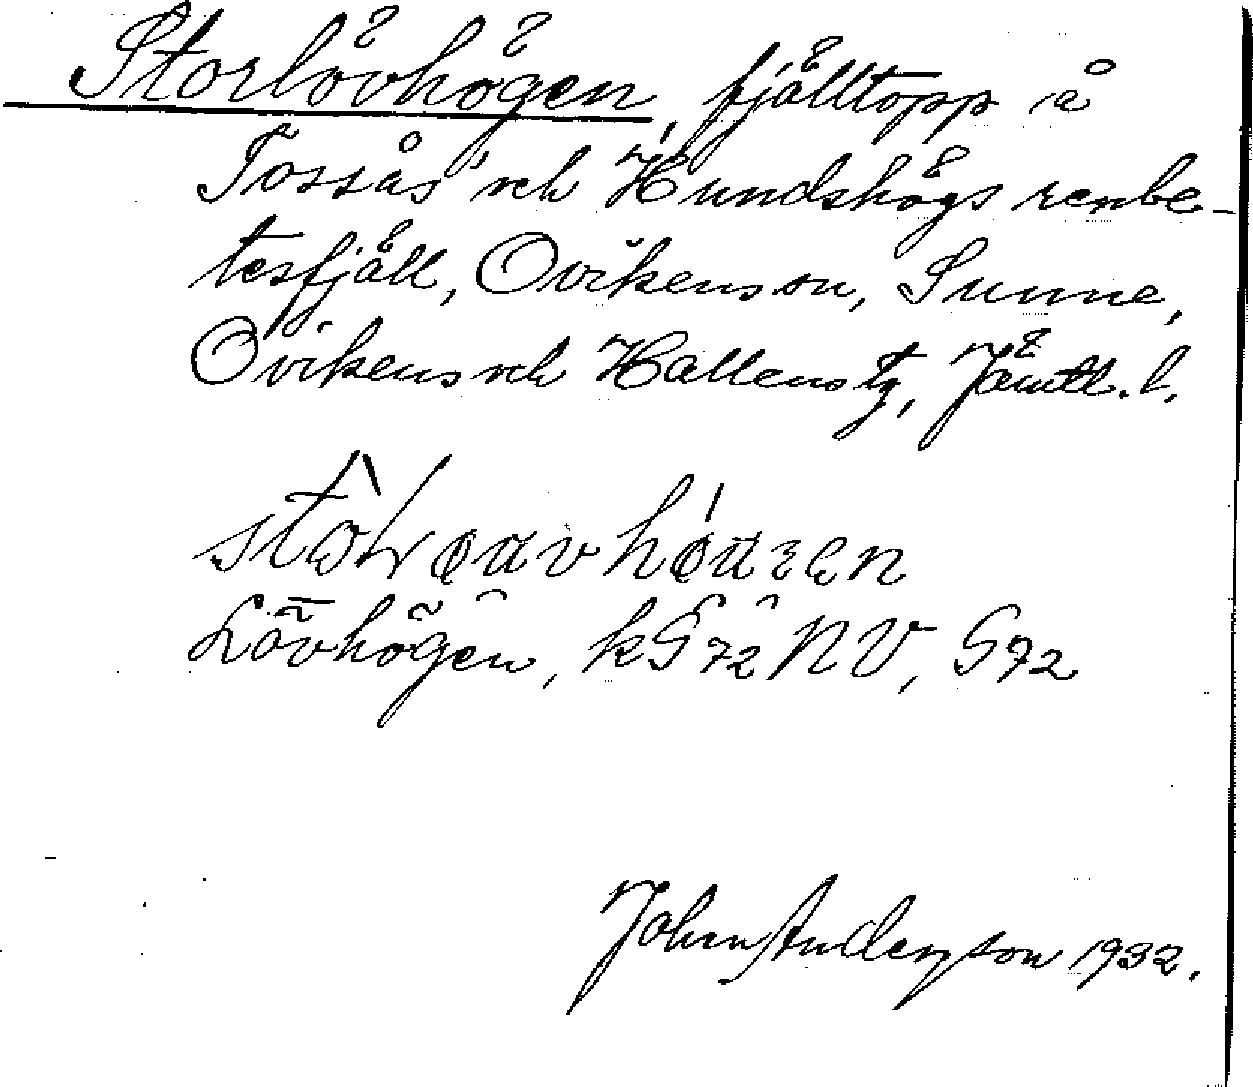 Storlövhögen, fjälltopp å
Tossås och Hundshögs renbe-
tesfjäll, Ovikens sn, Sunne,
Ovikens och Hallens tg, Jämtl. l.
Lövhögen, kG72 NV, G72
John Anderzson 1932.